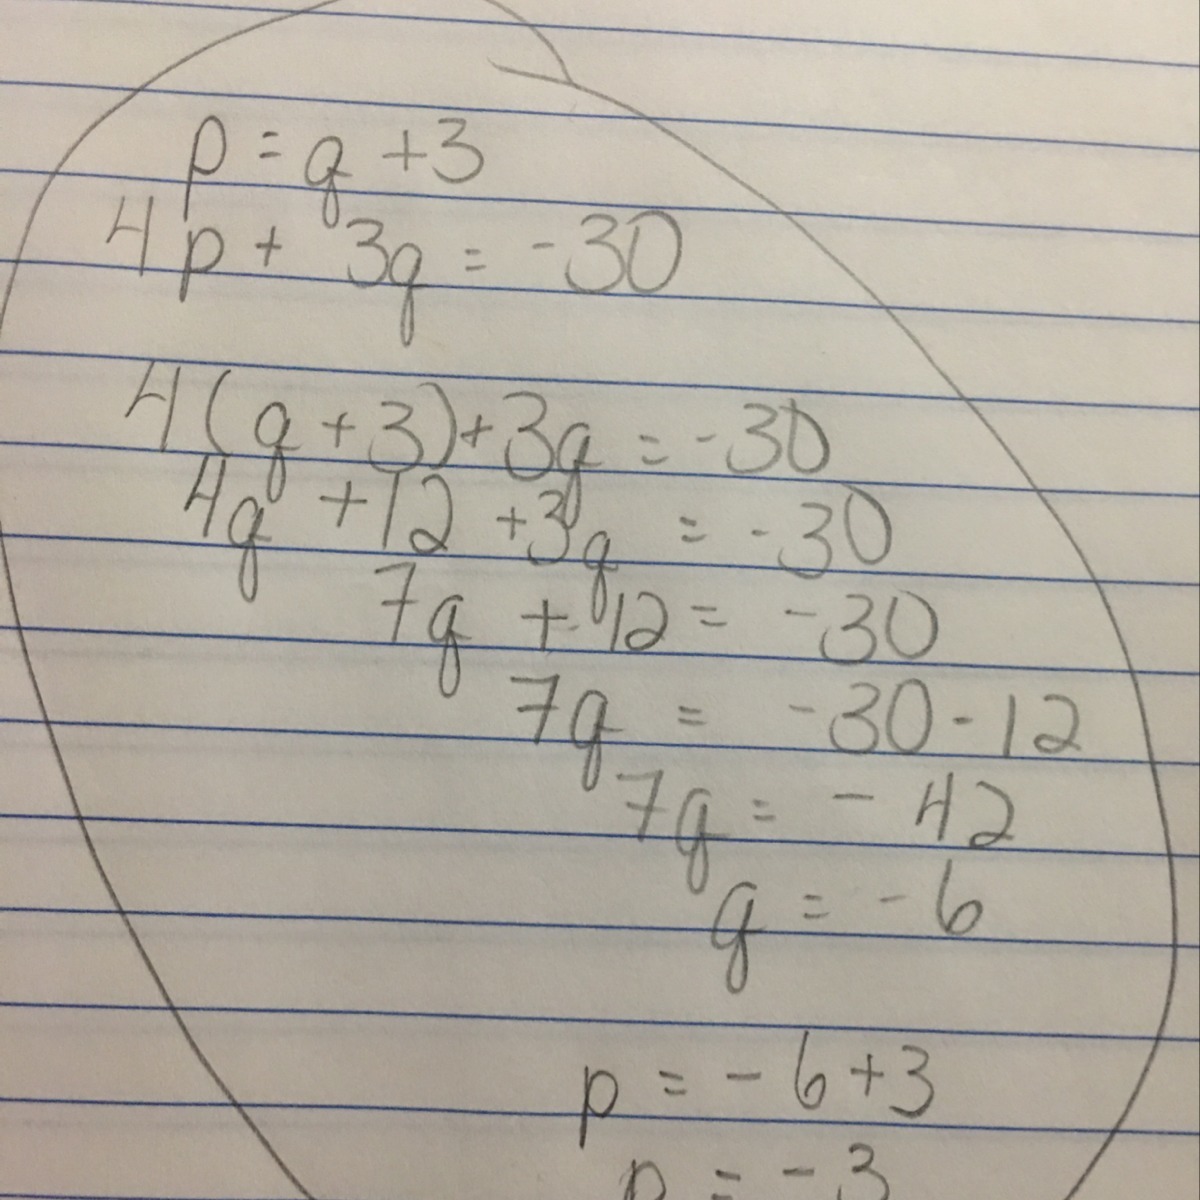 p = q + 3
4p + 3q = -30
4(q + 3) + 3q = -30
4q + 12 + 3q = -30
7q + 12 = -30
7q = -30 - 12
7q = - 42
q = - 6
p = - 6 + 3
p = - 3